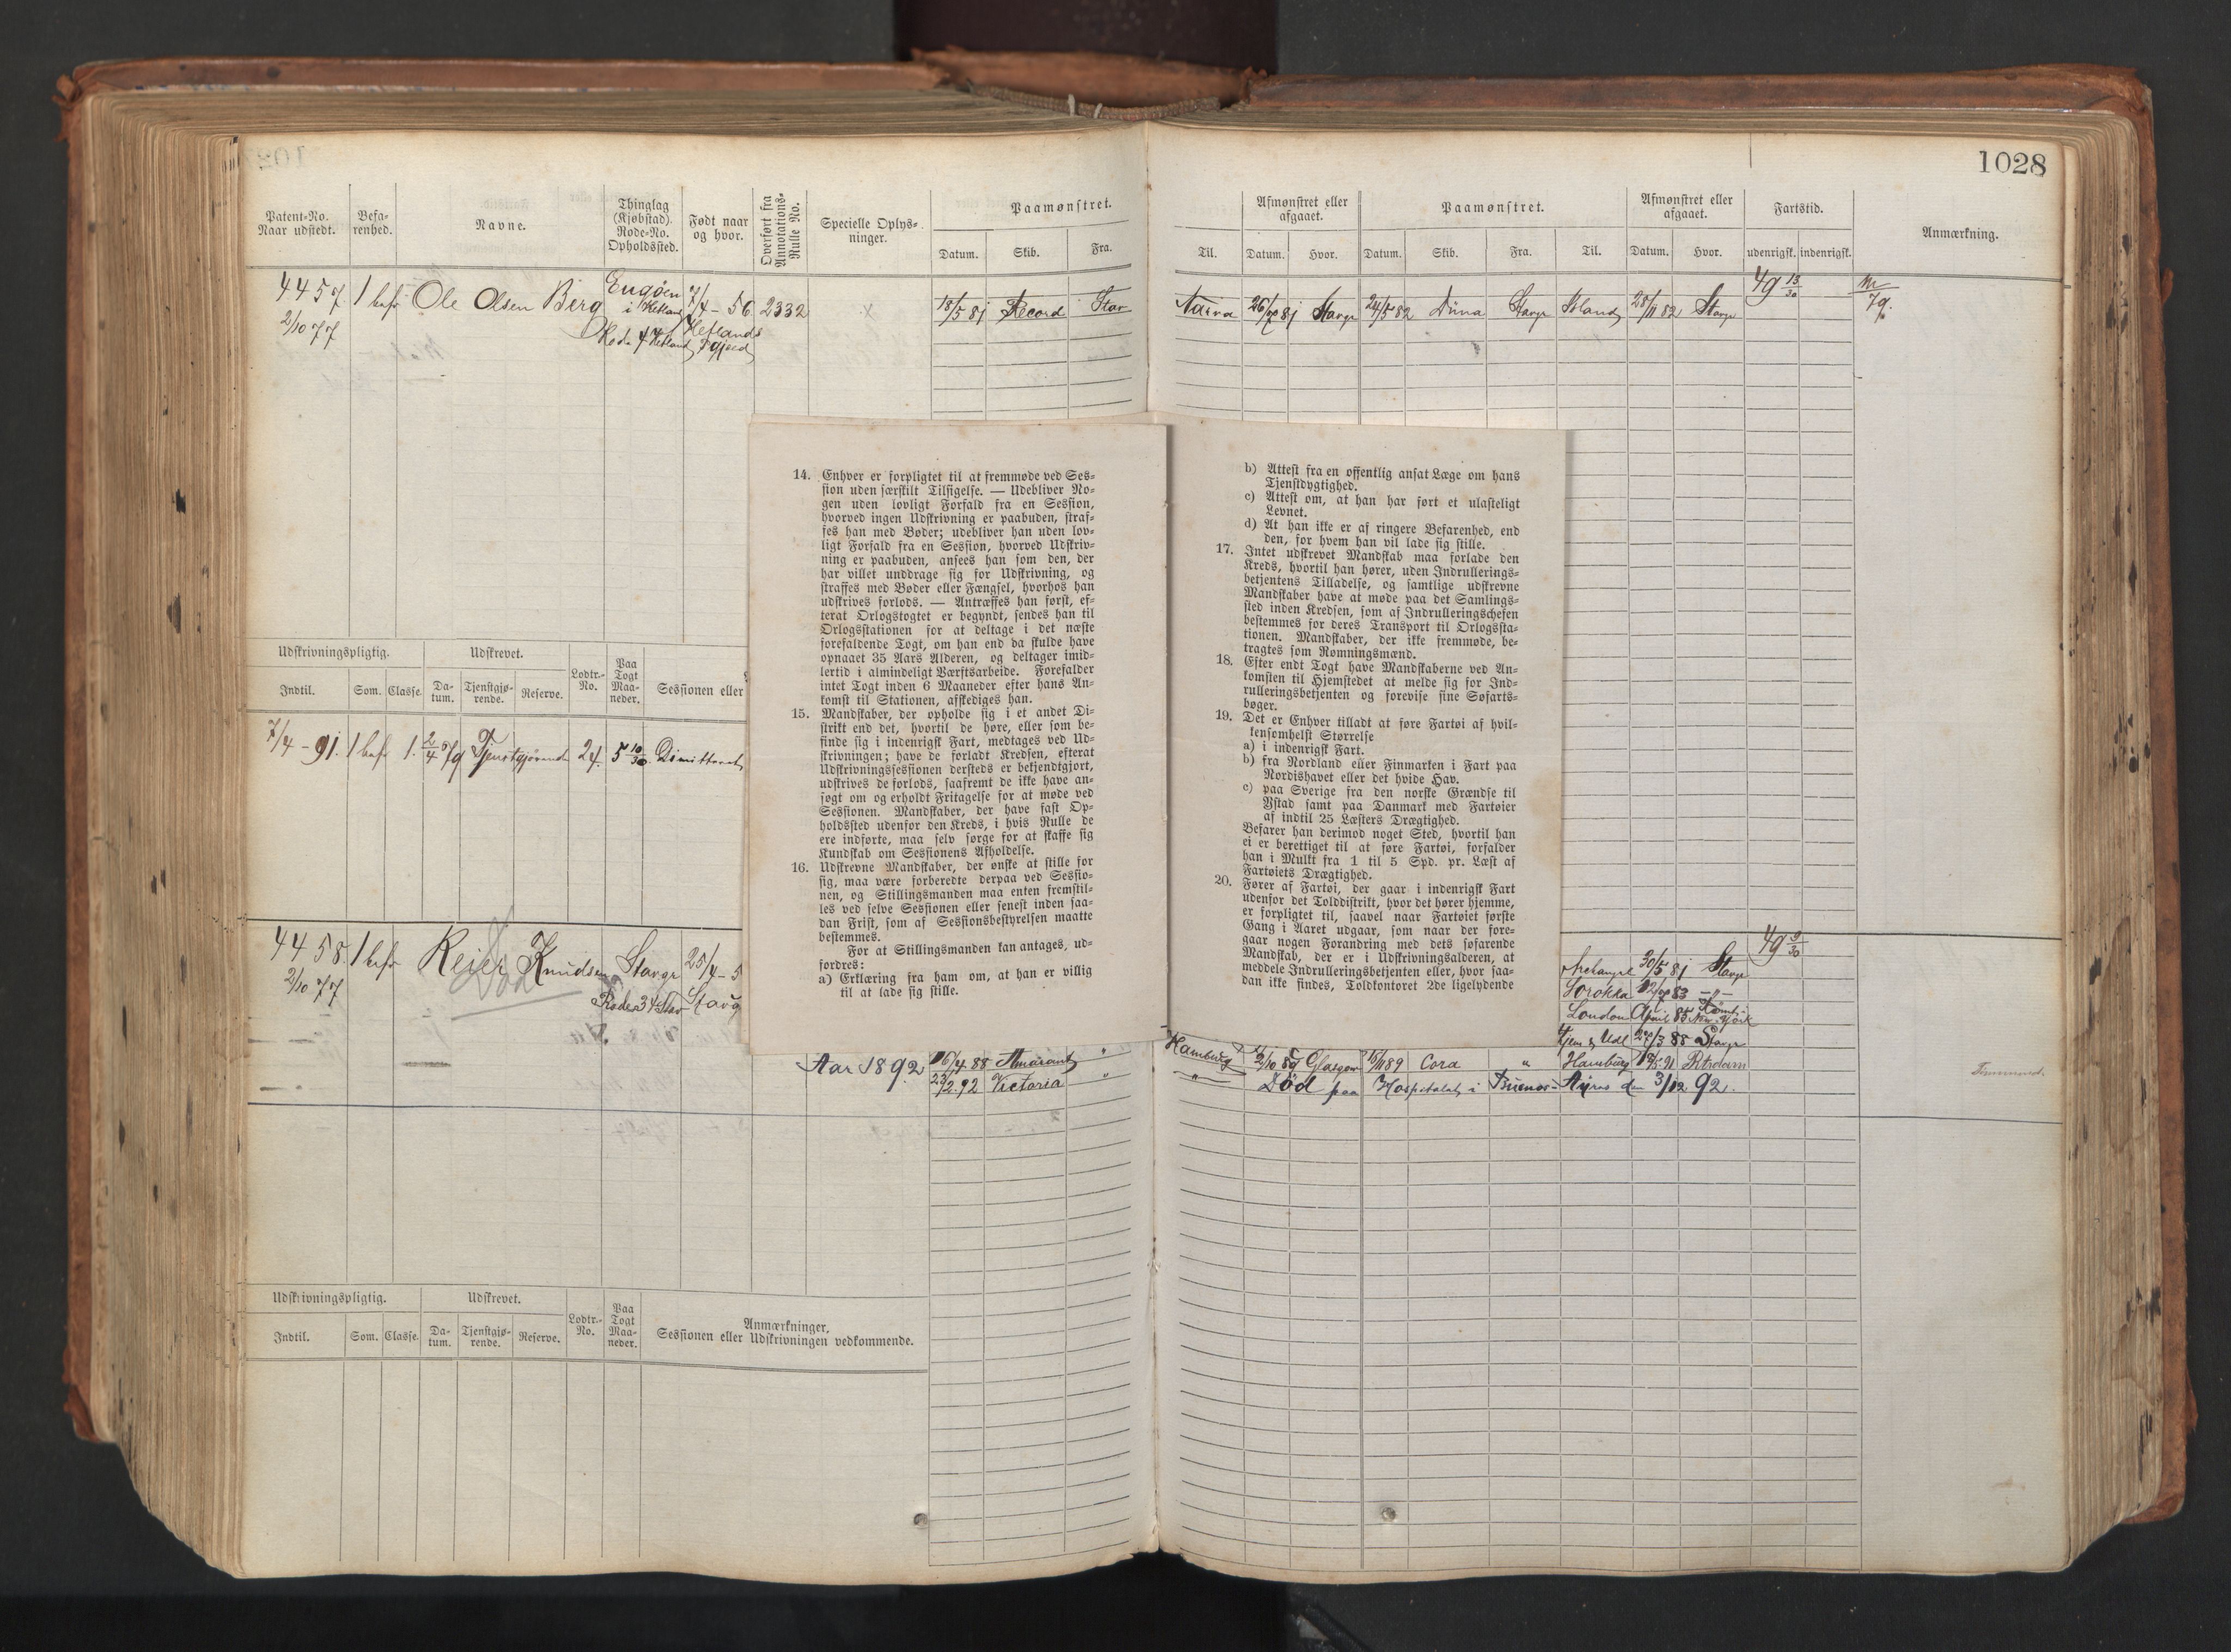 1028
Patent-No.
Naar udstedt.
Befa-
renhed.
Navne.
Thinglag
(Kjøbstad).
Rode-No.
Opholdssted.
Født naar
og hvor.
Overført fra
Annotations-
Rulle No.
Specielle Oplys-
ninger.
Paamønstret.
Datum.
Skib.
Fra.
Til.
Afmønstret eller
afgaaet.
Datum.
Hvor.
Paamønstret.
Datum.
Skib.
Fra.
Til.
Afmønstret eller
afgaaet.
Datum.
Hvor.
Fartstid.
udenrigsk.
indenrigsk.
Anmærkning.
4457
2/10 77
1 bef
Ole Olsen Berg
Engøen
i Hetland
Rode 4 Hetland
7/4-56
Hetlands
Pgjeld
2332
x
18/5 81 Record Stav
Narva 26/7 81 Stavgr 24/5 82 Düna Stavgr Island 28/11 82 Stavgr
49 13/30
79
Udskrivningspligtig.
Indtil.
Som.
Classe.
Udskrevet.
Da-
tum.
Tjenstgjø-
rende.
Reserve.
Lodtr.-
No.
Paa
Togt
Maa-
neder.
Sessionen eller
7/4-91. 1 bef 1. 2/4 79 Tjenstgjørende 24. 5 10/30 Dimitteret
14. Enhver er forpligtet til at fremmøde ved Ses-
sion uden særskilt Tilsigelse. — Udebliver No-
gen uden lovligt Forfald fra en Session,
hvorved ingen Udskrivning er paabuden, straf-
fes han med Bøder; udebliver han uden lov-
ligt Forfald fra en Session, hvorved Udskriv-
ning er paabuden, ansees han som den, der
har villet unddrage sig for Udskrivning, og
straffes med Bøder eller Fængsel, hvorhos han
udskrives forlods. — Antræffes han først, ef-
terat Orlogstogtet er begyndt, sendes han til
Orlogsstationen for at deltage i det næste
forefaldende Togt, om han end da skulde have
opnaaet 35 Aars Alderen, og deltager imid-
lertid i almindeligt Værftsarbeide. Forefalder
intet Togt inden 6 Maaneder efter hans An-
komst til Stationen, afskediges han.
15. Mandskaber, der opholde sig i et andet Di-
strikt end det, hvortil de høre, eller som be-
finde sig i indenrigsk Fart, medtages ved Ud-
skrivningen; have de forladt Kredsen, efterat
Udskrivningssessionen dersteds er bekjendtgjort,
udskrives de forlods, saafremt de ikke have an-
søgt om og erholdt Fritagelse for at møde ved
Sessionen. Mandskaber, der have fast Op-
holdssted udenfor den Kreds, i hvis Rulle de
ere indførte, maa selv sørge for at skaffe sig
Kundskab om Sessionens Afholdelse.
16. Udskrevne Mandskaber, der ønske at stille for
sig, maa være forberedte derpaa ved Sessio-
nen, og Stillingsmanden maa enten fremstil-
les ved selve Sessionen eller senest inden saa-
dan Frist, som af Sessionsbestyrelsen maatte
bestemmes.
For at Stillingsmanden kan antages, ud-
fordres:
a) Erklæring fra ham om, at han er villig
til at lade sig stille.
b) Attest fra en offentlig ansat Læge om hans
Tjenstdygtighed.
c) Attest om, at han har ført et ulasteligt
Levnet.
d) At han ikke er af ringere Befarenhed, end
den, for hvem han vil lade sig stille.
17. Intet udskrevet Mandskab maa forlade den
Kreds, hvortil han hører, uden Indrullerings-
betjentens Tilladelse, og samtlige udskrevne
Mandskaber have at møde paa det Samlings-
sted inden Kredsen, som af Indrulleringschefen
bestemmes for deres Transport til Orlogssta-
tionen. Mandskaber, der ikke fremmøde, be-
tragtes som Rømningsmænd.
18. Efter endt Togt have Mandskaberne ved An-
komsten til Hjemstedet at melde sig for Ind-
rulleringsbetjenten og forevise sine Søfarts-
bøger.
19. Det er Enhver tilladt at føre Fartøi af hvil-
kensomhelst Størrelse
a) i indenrigsk Fart.
b) fra Nordland eller Finmarken i Fart paa
Nordishavet eller det hvide Hav.
c) paa Sverige fra den norske Grændse til
Ystad samt paa Danmark med Fartøier
af indtil 25 Læsters Drægtighed.
Befarer han derimod noget Sted, hvortil han
ei er berettiget til at føre Fartøi, forfalder
han i Mulkt fra 1 til 5 Spd. pr. Læst af
Fartøiets Drægtighed.
20. Fører af Fartøi, der gaar i indenrigsk Fart
udenfor det Tolddistrikt, hvor det hører hjemme,
er forpligtet til, saavel naar Fartøiet første
Gang i Aaret udgaar, som naar der fore-
gaar nogen Forandring med dets søfarende
Mandskab, der er i Udskrivningsalderen, at
meddele Indrulleringsbetjenten eller, hvor saa-
dan ikke findes, Toldkontoret 2de ligelydende
4458.
2/10 77
1 bef
Reier Knudsen
Død
Stavgr
Rode 34 Stav
25/4-5
Stavg
49 9/30
Archangel 30/5 81 Stavgr
Sorokka 12/7 83 -"-
London April 85 Rømt New-York
Hjem fra Udl 29/3 88 Stavgr
Aar 1892
16/4 88 Amarant "
Hamburg 2/10 89 Glasgow 15/11 89 Cora " Hamburg
23/2 92 Victoria "
" Død paa Hospitalet i Buenos-Ayres den 3/12 92.
Udskrivningspligtig.
Indtil.
Som.
Classe.
Udskrevet.
Da-
tum.
Tjenstgjø-
rende.
Reserve.
Lodtr.-
No.
Paa
Togt
Maa-
neder.
Anmærkninger,
Sessionen eller Udskrivningen vedkommende.